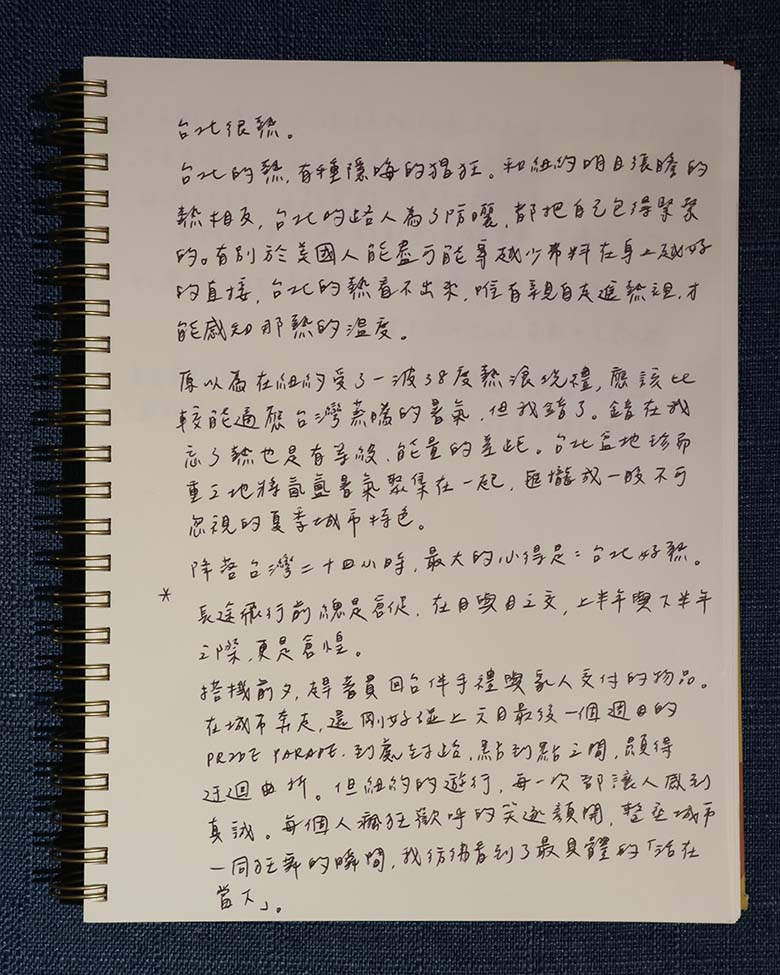 台北很熱。
台北的熱,有種隱晦的猖狂。和紐約明目張膽的
熱相反,台北的路人為了防曬,都把自己包得緊緊
的。有別於美國人能盡可能穿越少布料在身上越好
的直接,台北的熱看不出來,唯有親自走進熱裡,才
能感知那熱的溫度。
原以為在紐約受了一波38度熱浪洗禮,應該比
較能適應台灣蒸騰的暑氣,但我錯了。錯在我
忘了熱也是有等級、能量的差距。台北盆地珍而
重之地將氤氳暑氣聚集在一起,匯攏成一股不可
忽視的夏季城市特色。
降落台灣二十四小時,最大的心得是:台北好熱。
*
長途飛行前總是倉促,在月與月之交,上半年與下半年
之際,更是倉惶。
搭機前夕,趕著買回台伴手禮與家人交付的物品。
在城市奔走,還剛好碰上六月最後一個週日的
PRIDE PARADE.到處封路,點到點之間,顯得
迂迴曲折。但紐約的遊行,每一次都讓人感到
真誠。每個人瘋狂歡呼的笑逐顏開,整座城市
一同狂舞的瞬間,我彷彿看到了最具體的「活在
當下」。